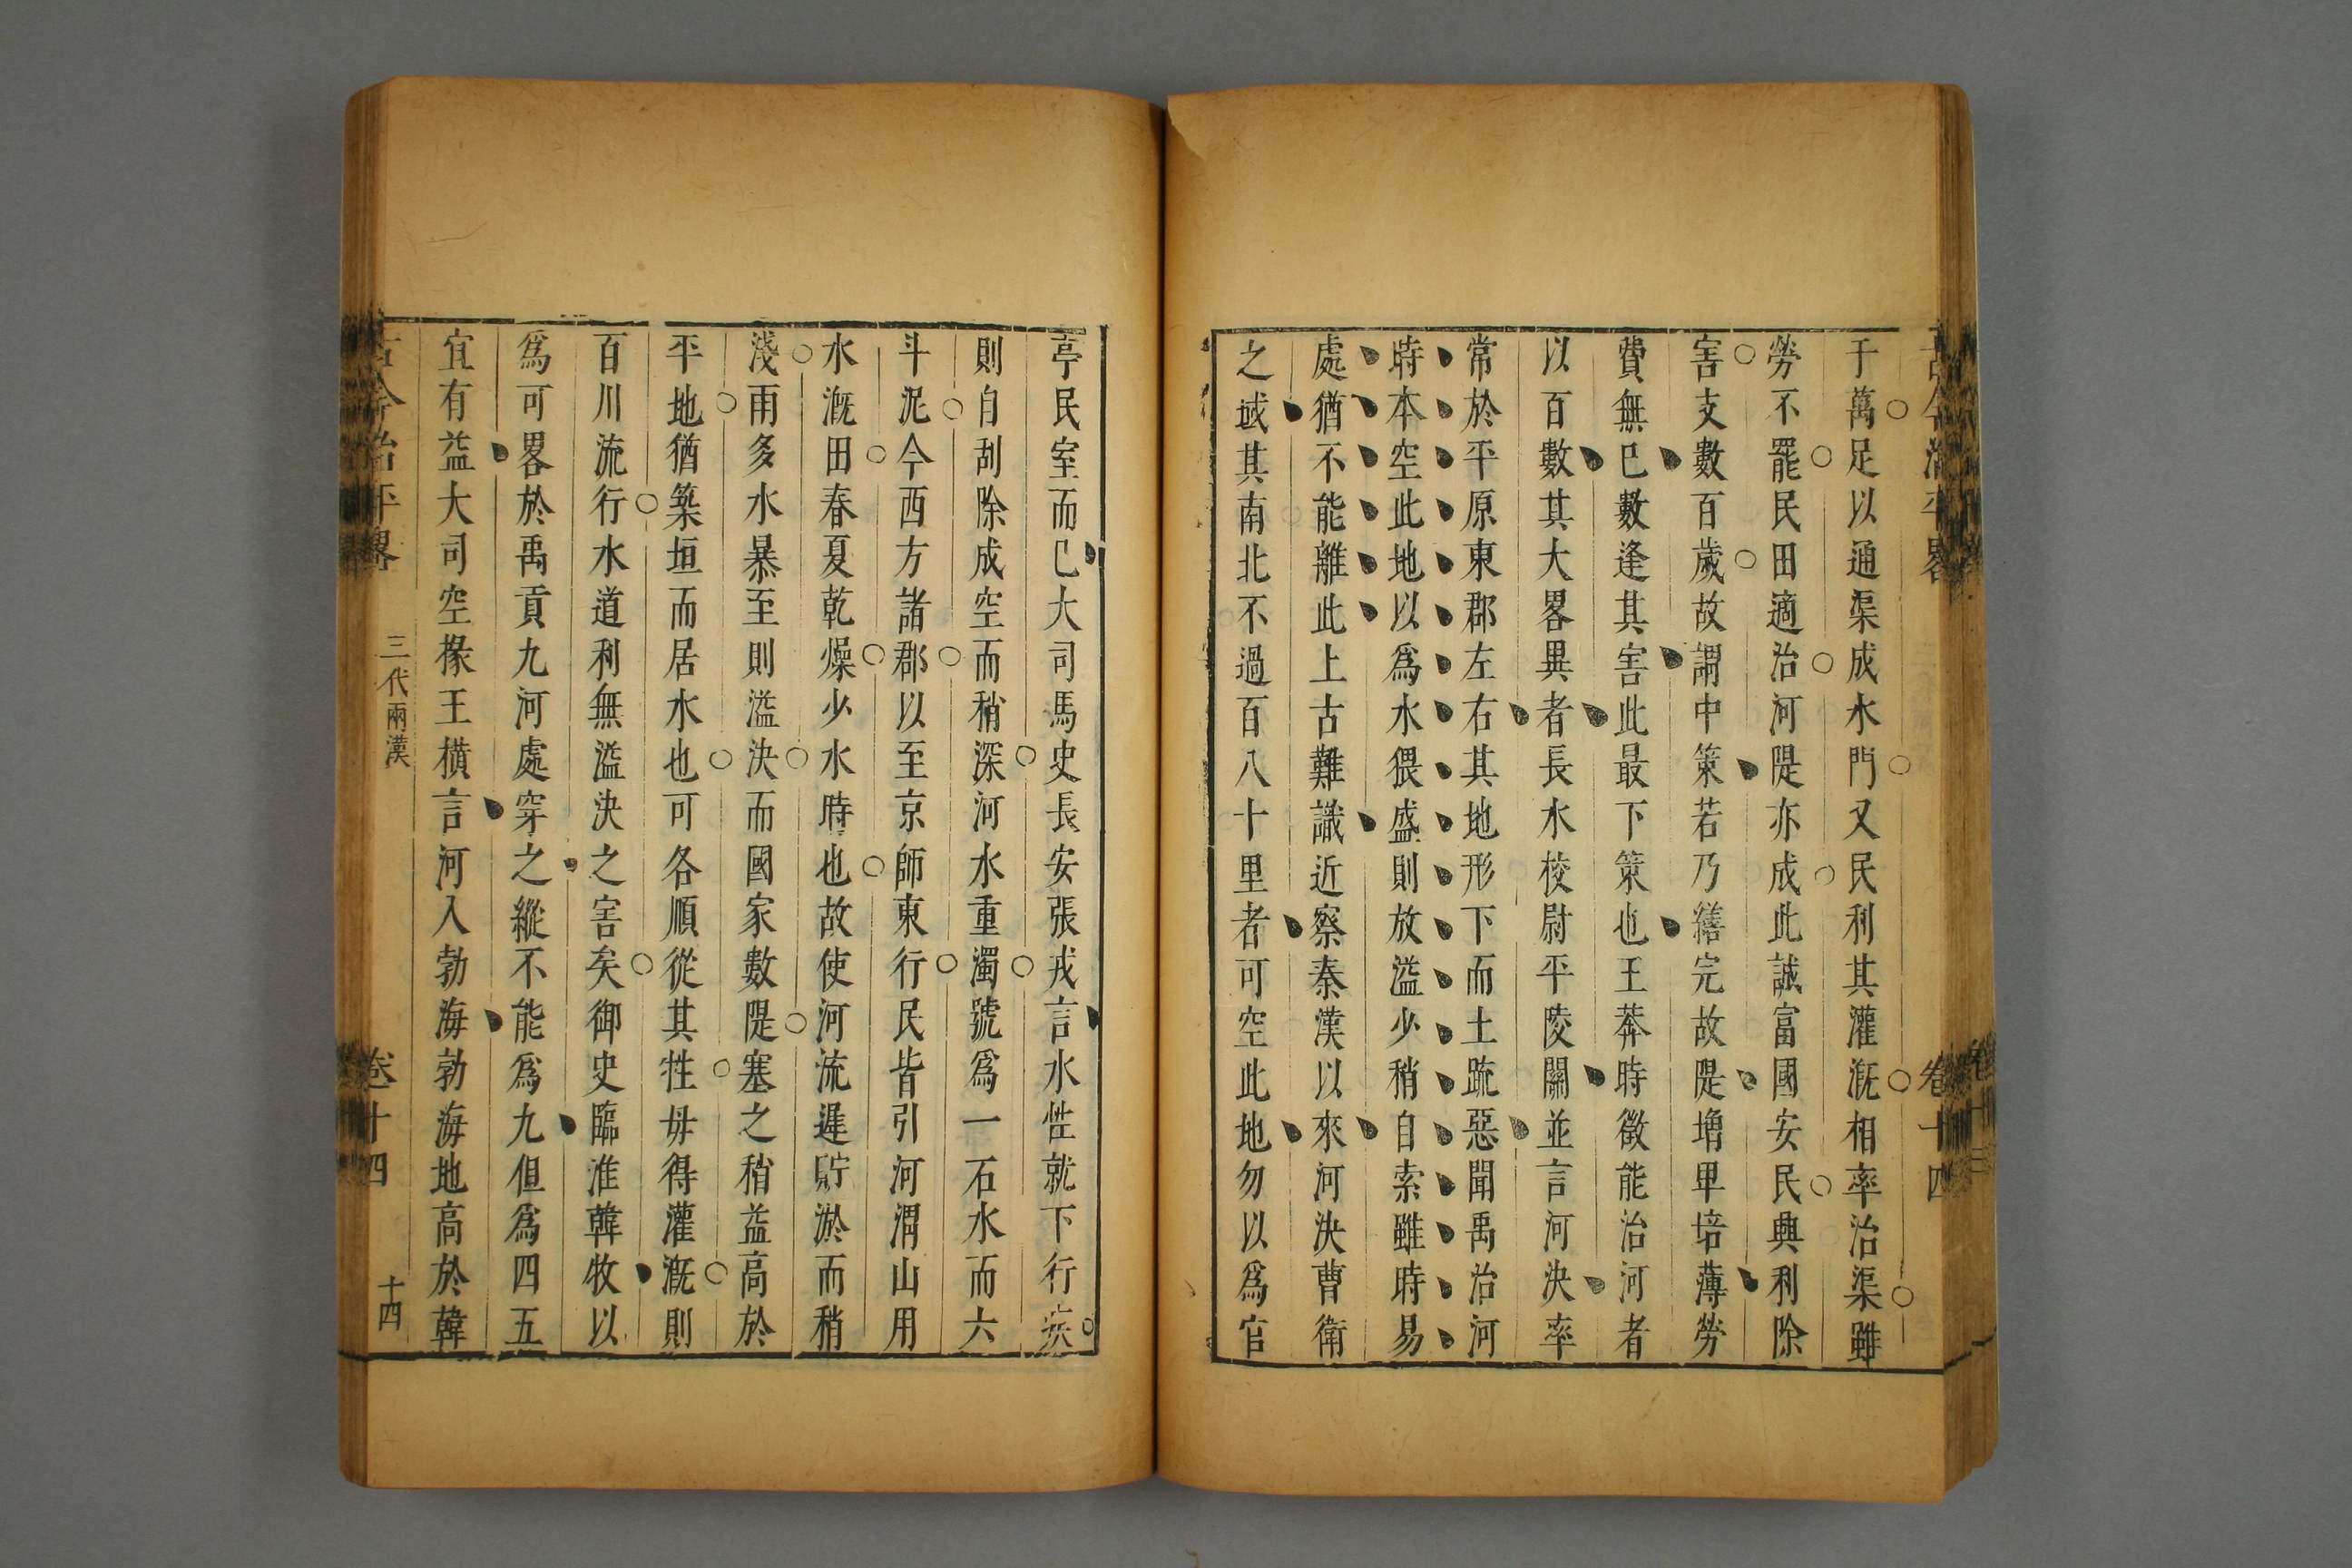 千萬足以通渠成水門又民利其灌漑相率治渠雖
勞不罷民田適治河隄亦成此誠富國安民興利除
害支數百歲故謂中策若乃繕完故隄增卑培薄勞
費無已數逢其害此最下策也王莽時徵能治河者
以百數其大畧異者長水校尉平陵關並言河決率
常於平原東郡左右其地形下而土疏惡聞禹治河
時本空此地以爲水猥盛則放溢少稍自索雖時易
處猶不能離此上古難識近察秦漢以來河決曹衛
之域其南北不過百八十里者可空此地勿以爲官
亭民室而已大司馬史長安張戎言水性就下行疾
則自刮除成空而稍深河水重濁號爲一石水而六
斗泥今西方諸郡以至京師東行民皆引河渭山用
水漑田春夏乾燥少水時也故使河流遲貯淤而稍
淺雨多水暴至則溢決而國家數隄塞之稍益高於
平地猶築垣而居水也可各順從其性毋得灌漑則
百川流行水道利無溢決之害矣御史臨淮韓牧以
爲可畧於禹貢九河處穿之縱不能爲九但爲四五
宜有益大司空掾王橫言河入勃海勃海地高於韓
古今治平畧 三代兩漢 卷十四 十四